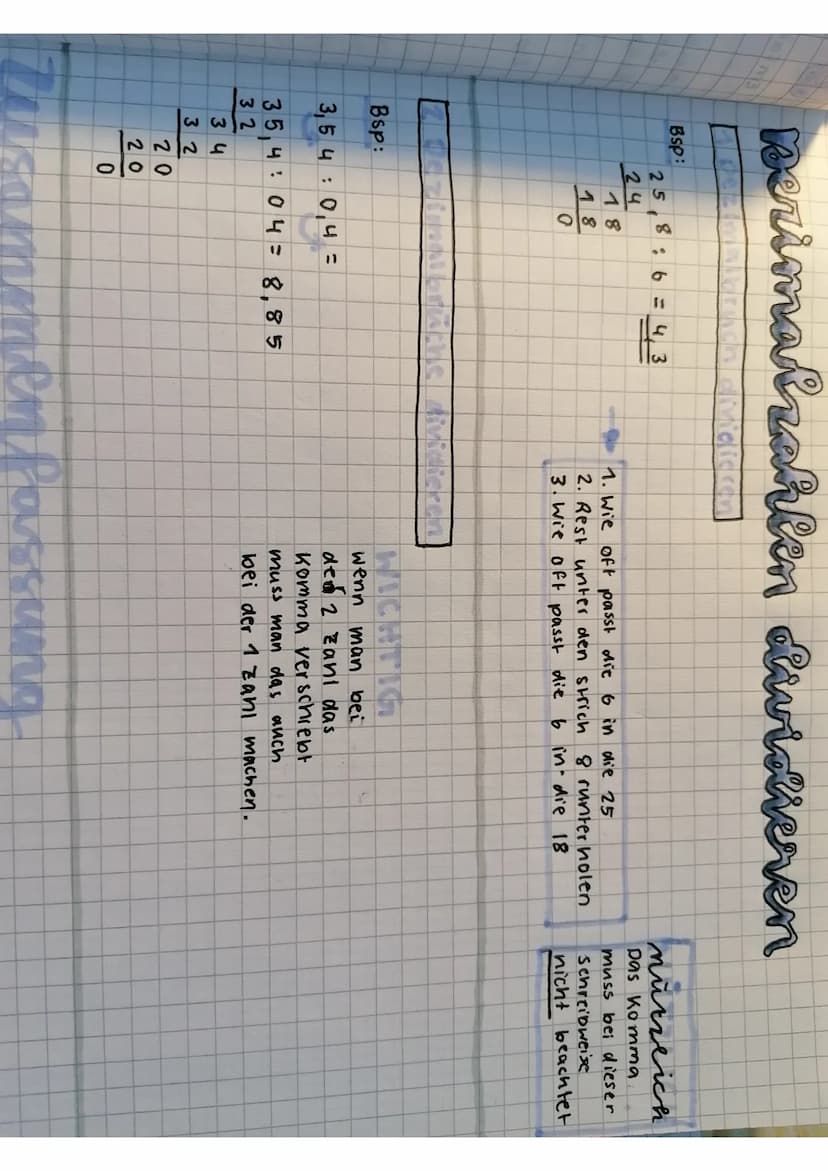 Dezimalzahlen dividieren
1 Dezimalbruch dividieren
Bsp:
25,8 : 6 = 4,3
24
18
18
0
1. Wie oft passt die 6 in die 25
2. Rest unter den strich 8 runterholen
3. Wie oft passt die 6 in die 18
nützlich
Das Komma
muss bei dieser
schreibweise
nicht beachtet
2 Dezimalbrüche dividieren
Bsp:
3,54 : 0,4 =
35,4 : 04 = 8,85
32
34
32
20
20
0
WICHTIG
wenn man bei
der 2 zahl das
Komma verschiebt
muss man das auch
bei der 1 zahl machen.
Zusammenfassung